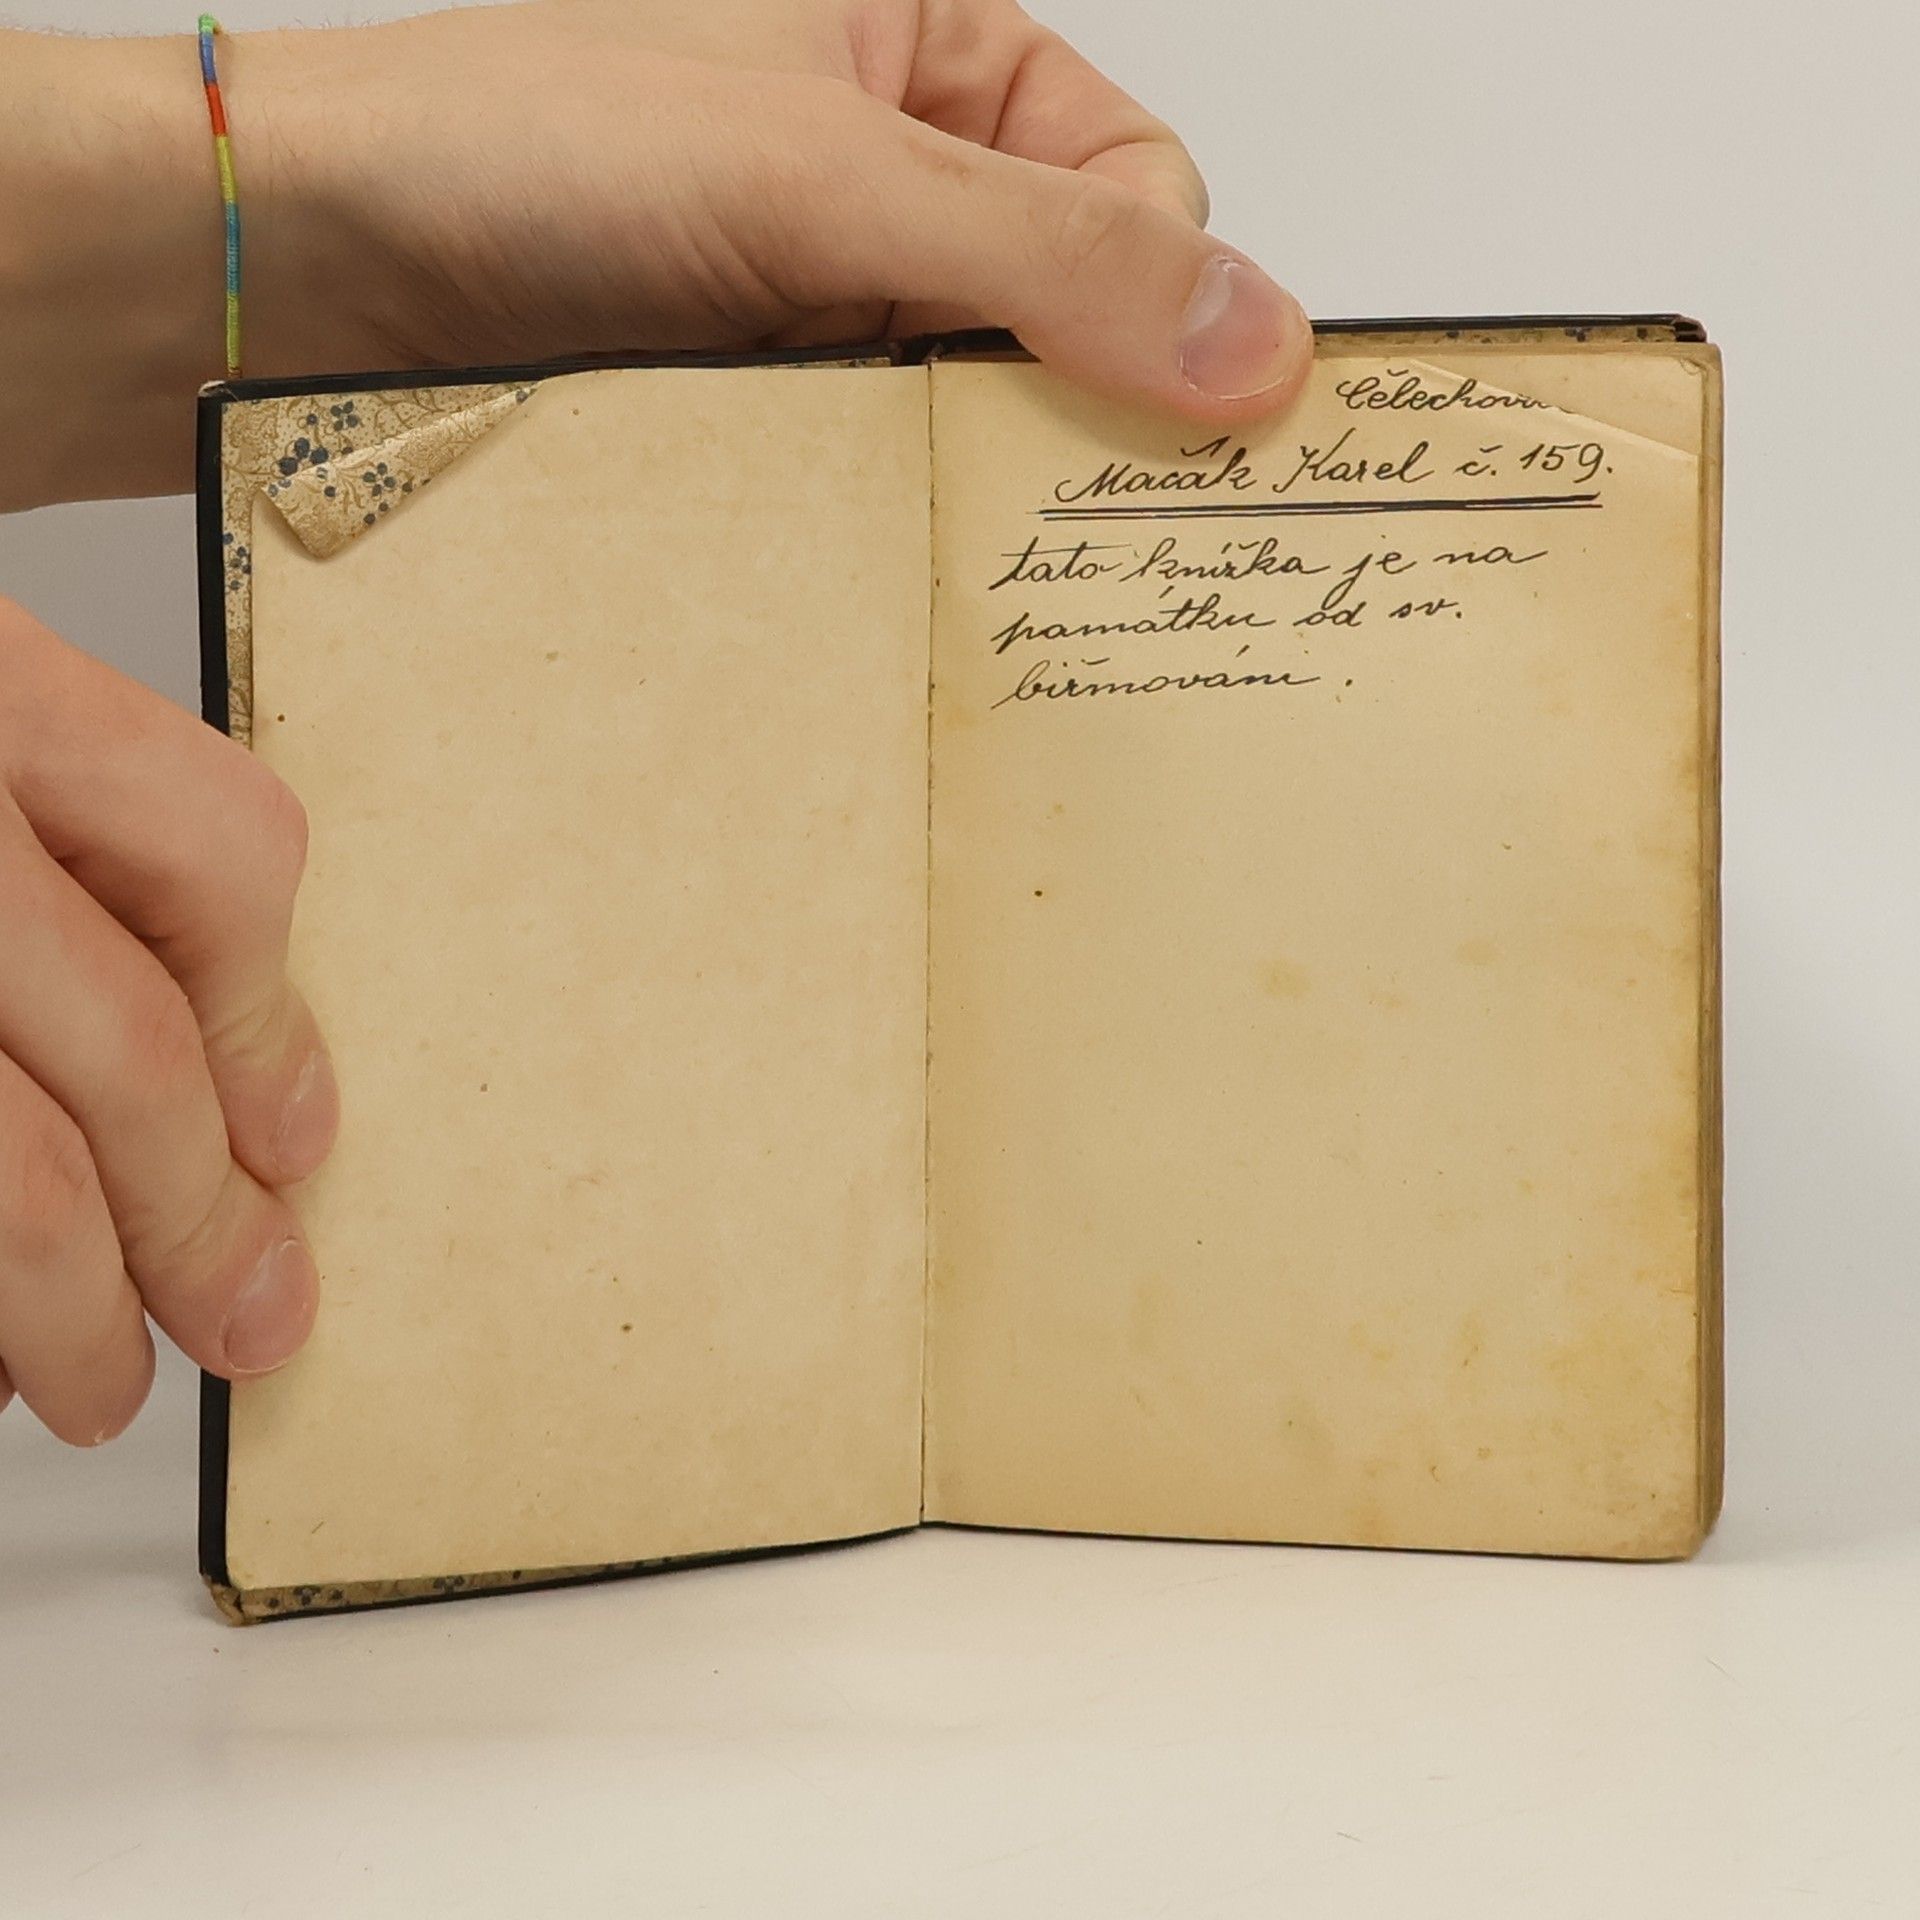 Macák Karel č. 159.
tato knížka je na
památku od sv.
biřmováni.